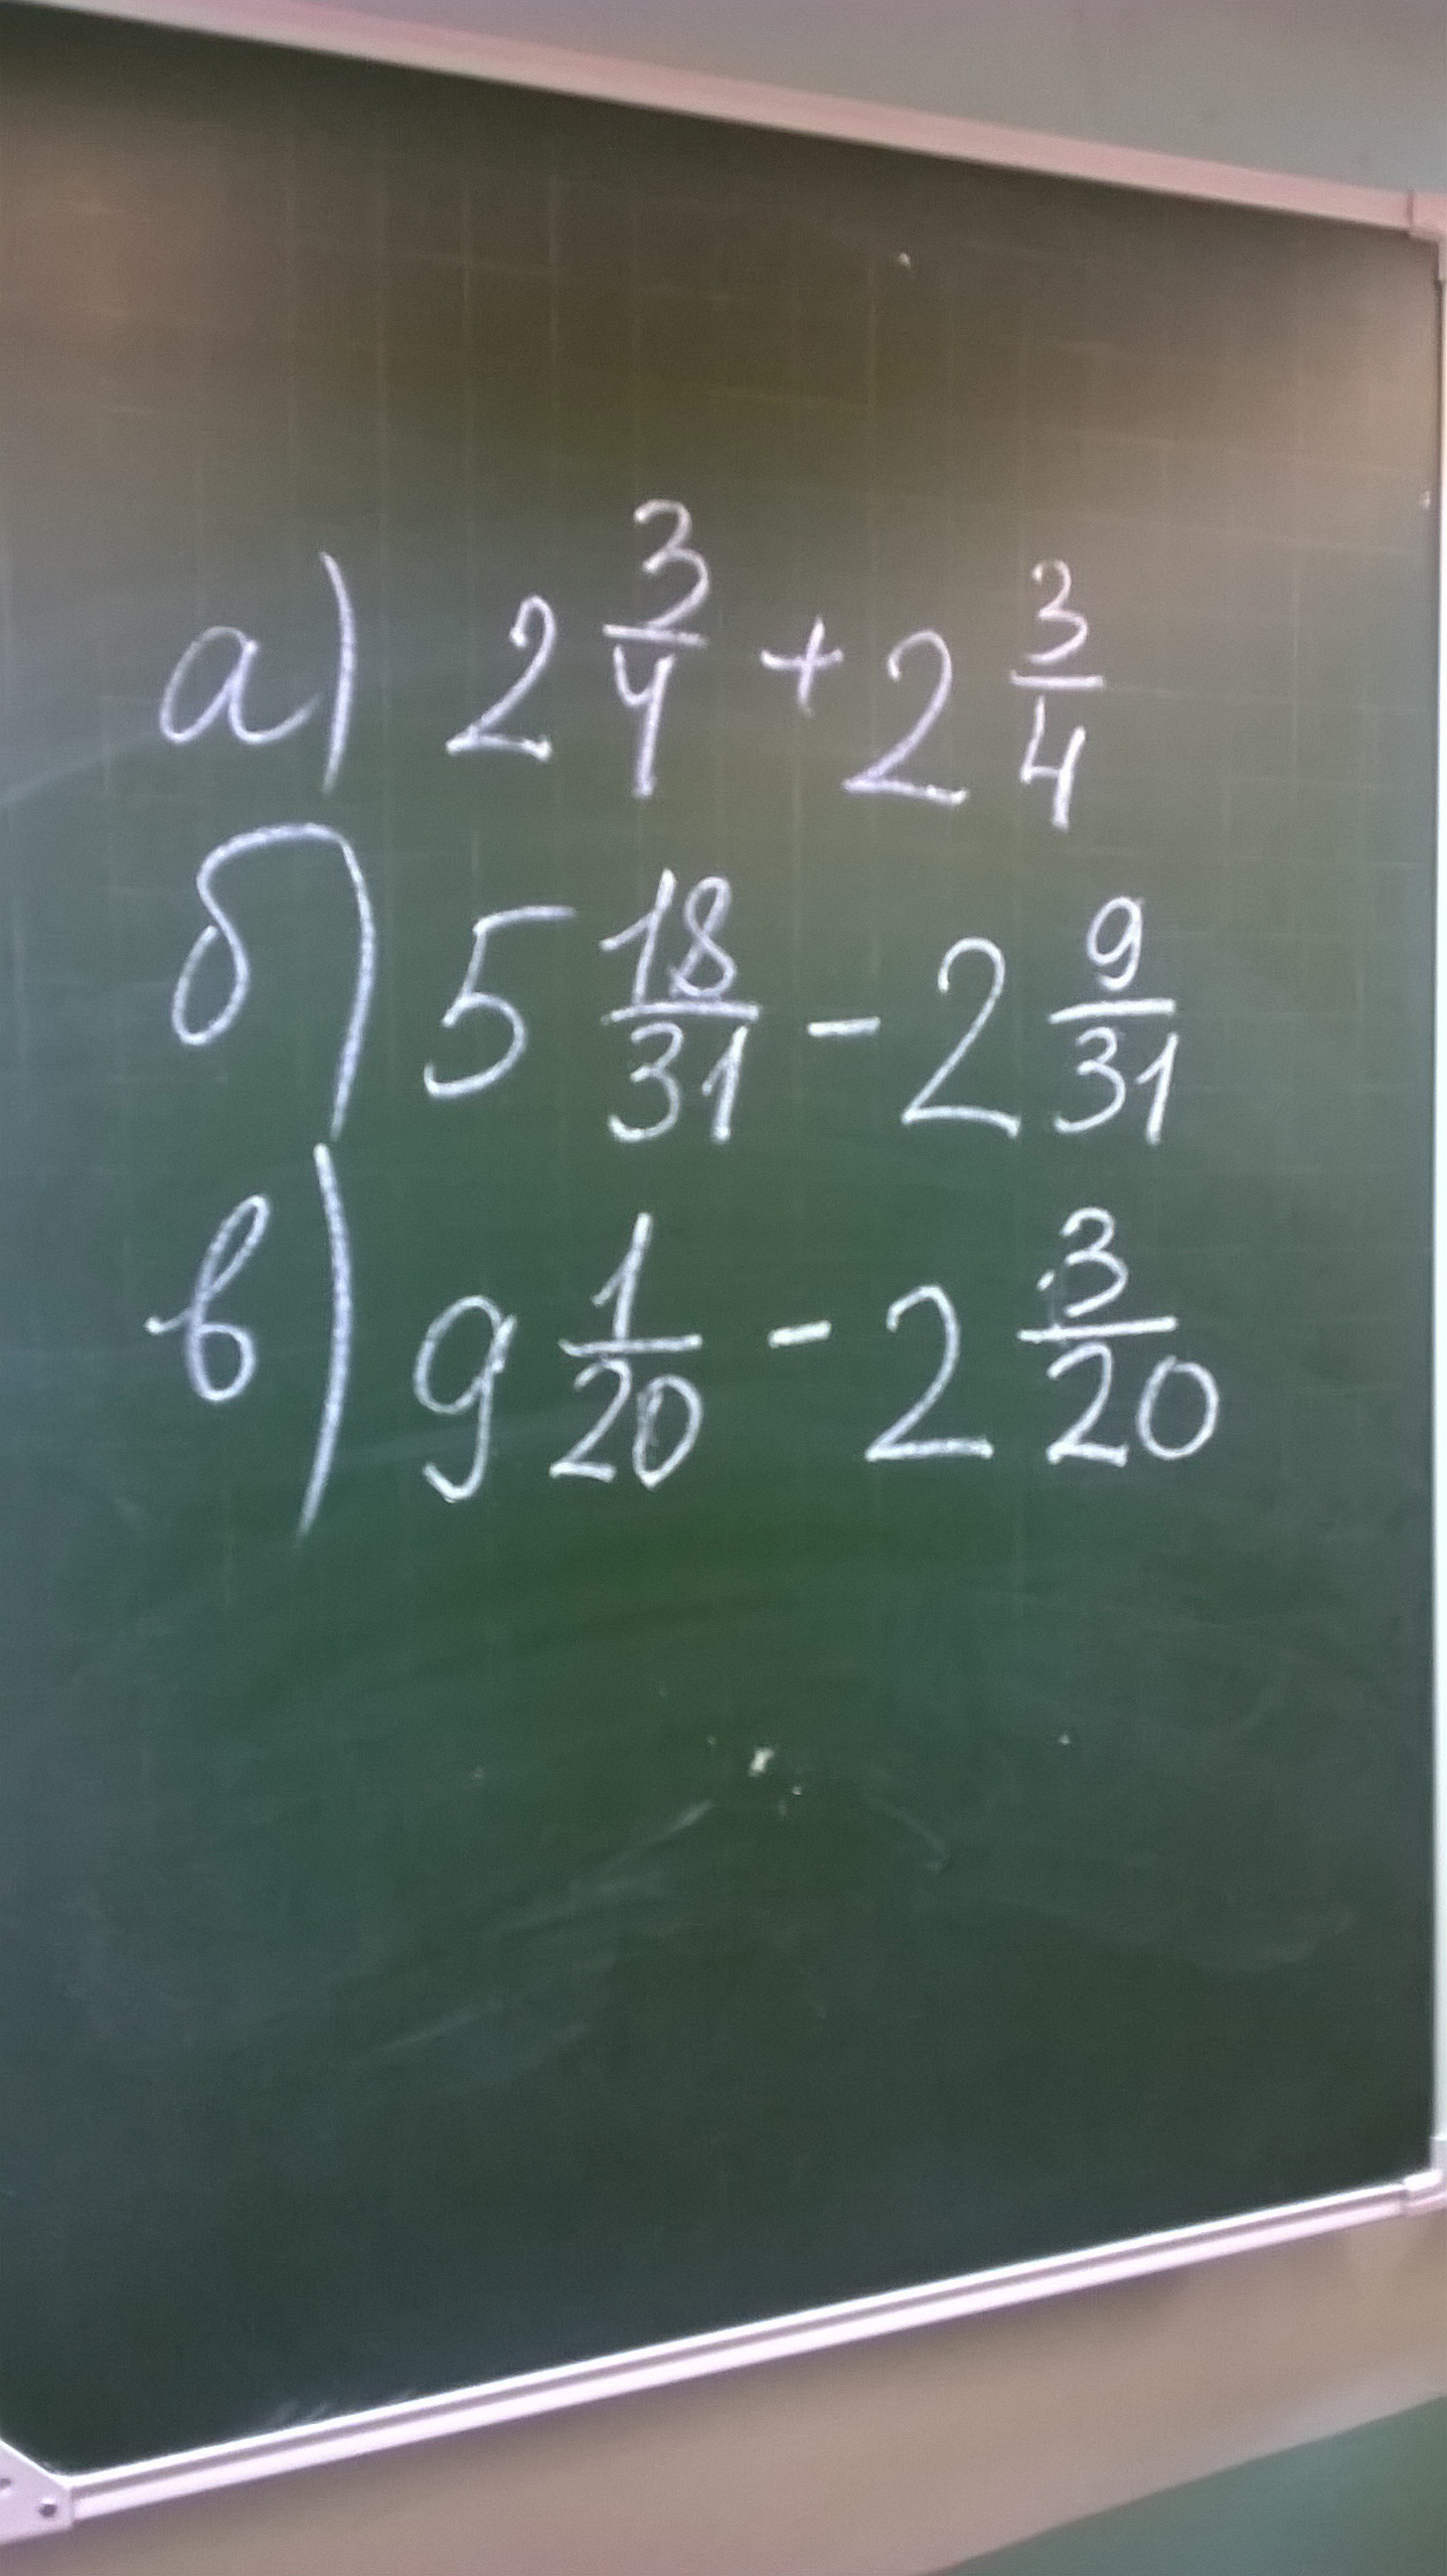 а) 2 3/4 + 2 3/4
б) 5 18/31 - 2 9/31
в) 9 1/20 - 2 3/20